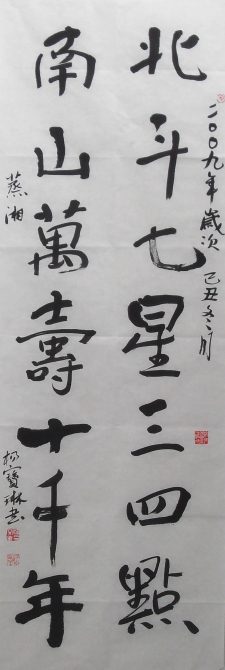 二〇〇九年歲次己丑冬月
北斗七星三四點
南山萬壽十千年
蒸湘
楊寶琳书